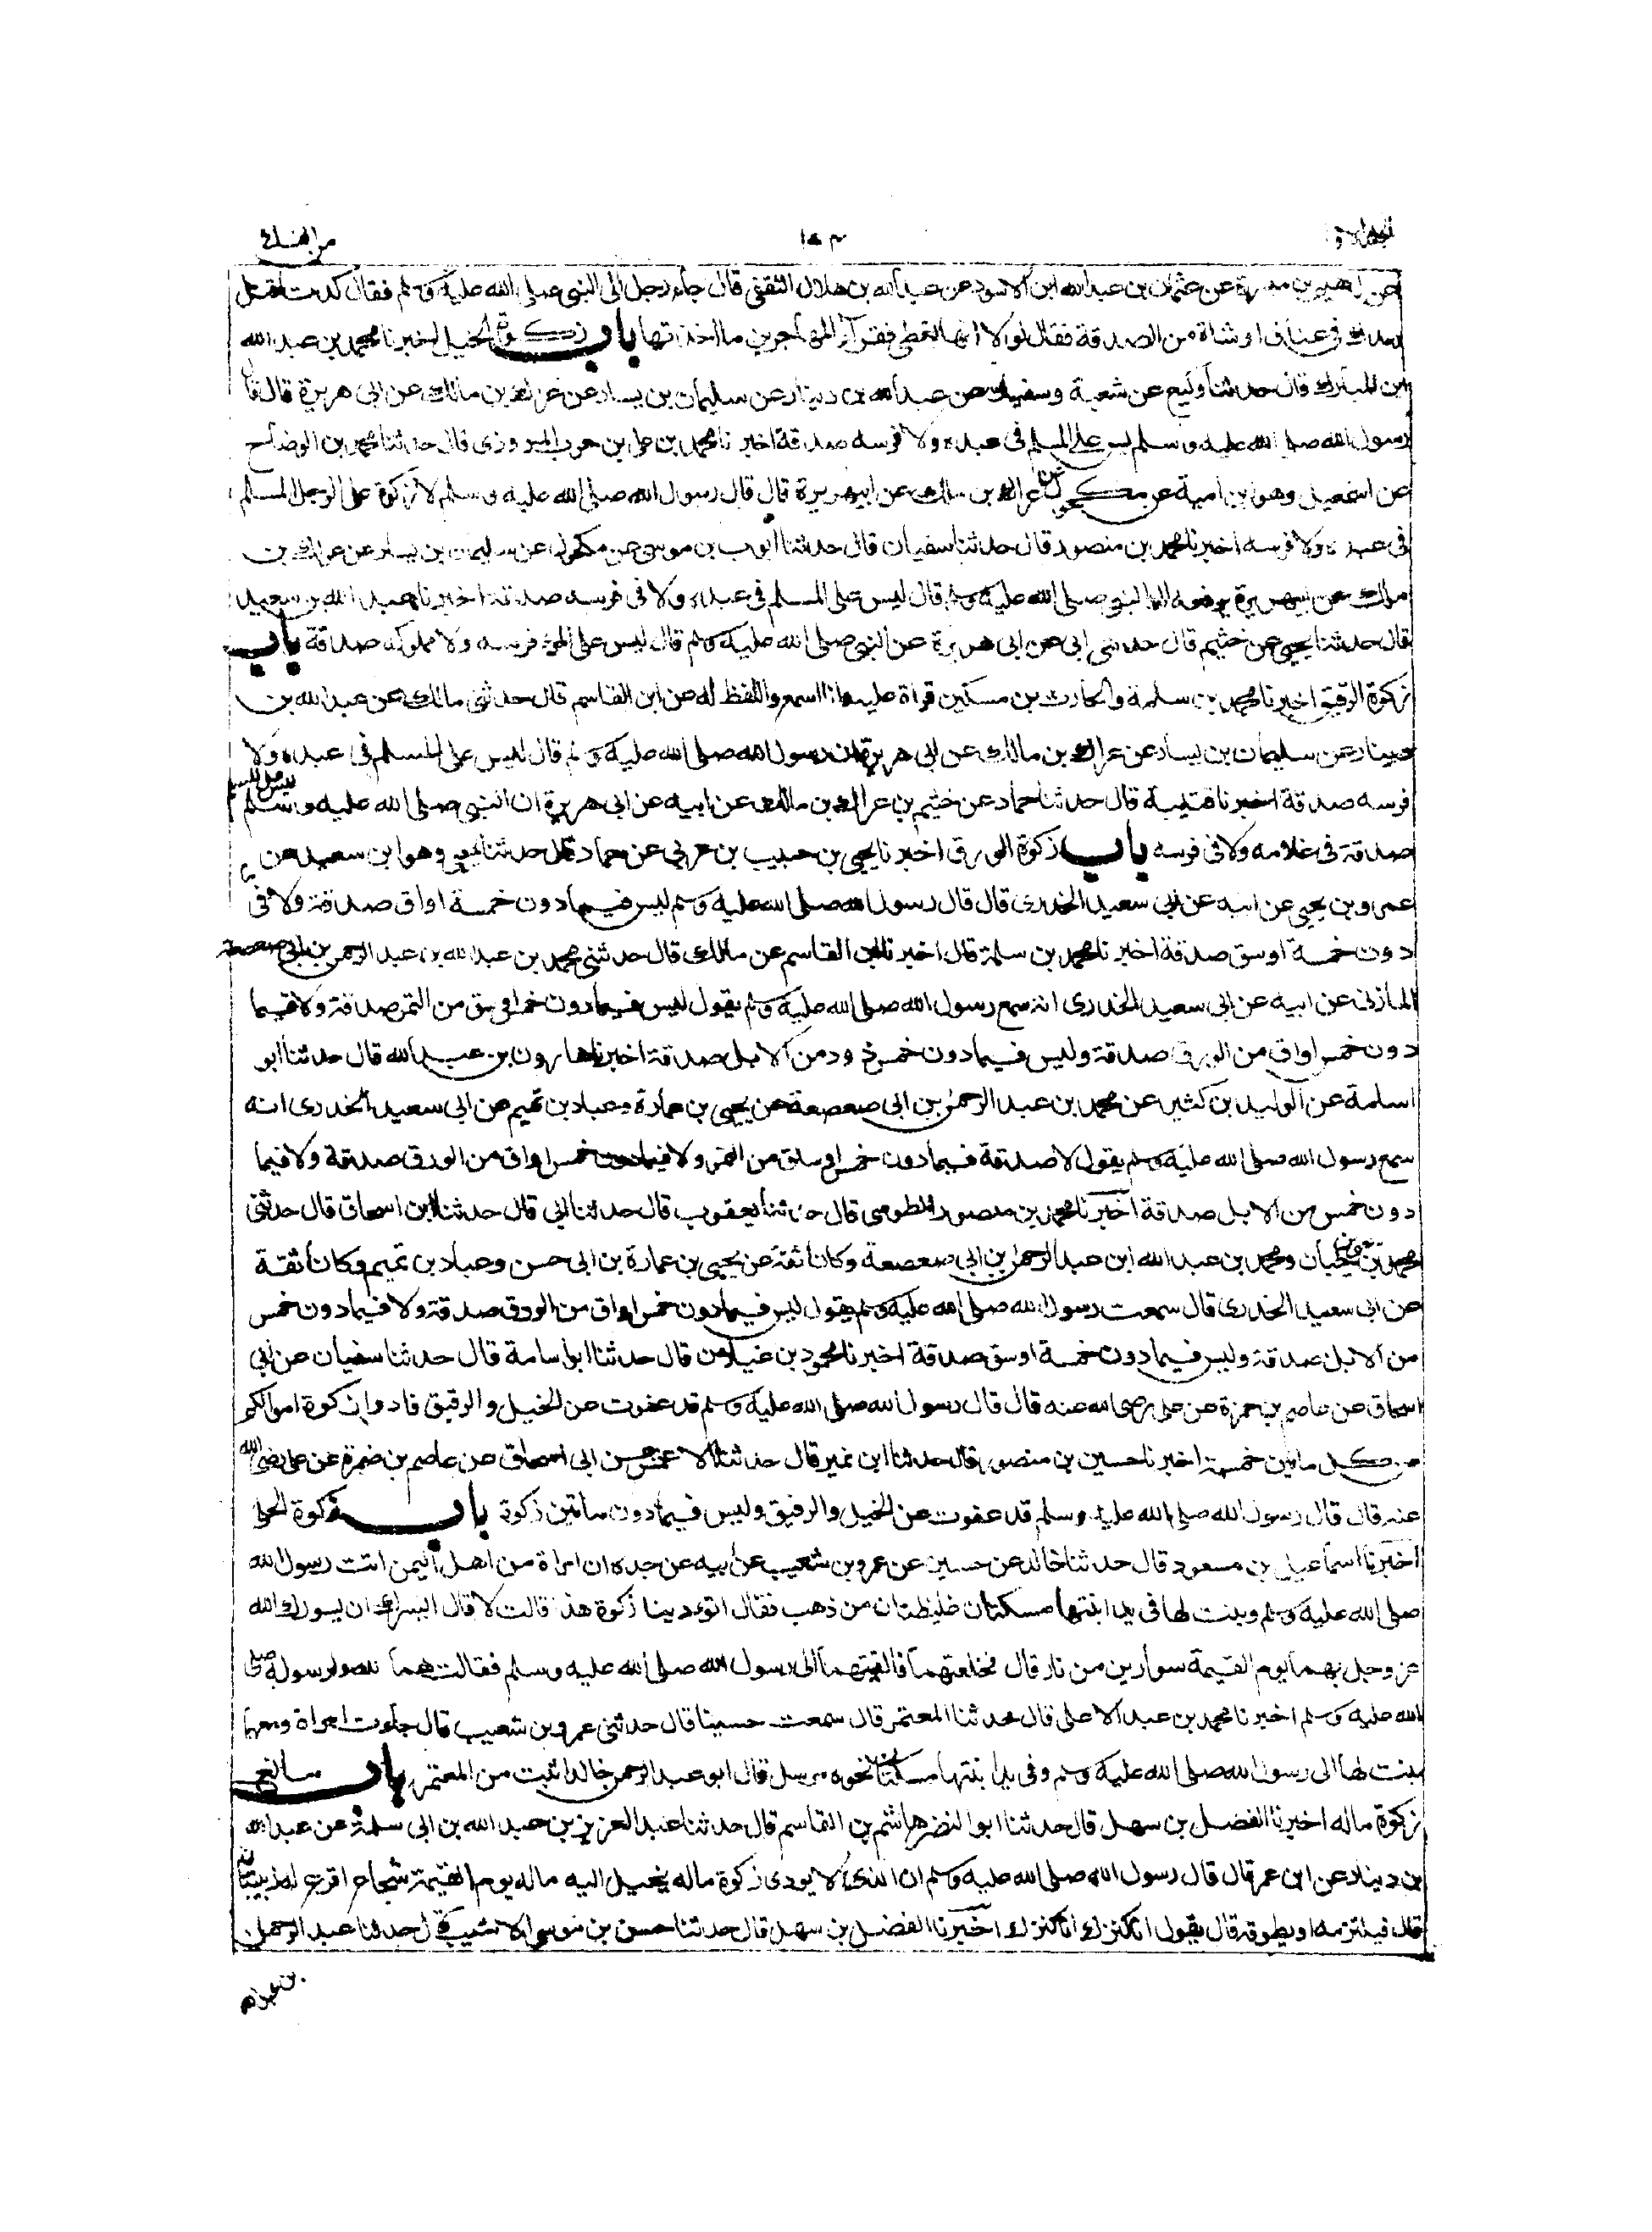 عن ابراهيم بن ميسرة عن عثمان بن عبد الله ابن الاسود عن عبد الله بن هلال الثقفى قال جاء رجل الى النبى صلى الله عليه وسلم فقال كدت اقتل
بعدك فى عناق او شاة من الصدقة فقال لولا انها تعطى فقرآء المهاجرين ما اخذتها باب زكوة الخيل اخبرنا محمد بن عبد الله
ابن المبارك قال حدثنا وكيع عن شعبة وسفيان عن عبد الله بن دينار عن سليمان بن يسار عن عراك بن مالك عن ابى هريرة قال قال
رسول الله صلى الله عليه وسلم ليس على المسلم فى عبده ولا فرسه صدقة اخبرنا محمد بن على بن حرب المروزى قال حدثنا محرز بن الوضاح
عن اسمعيل وهو ابن امية عن مكحول عن عراك بن مالك عن ابيهريرة قال قال رسول الله صلى الله عليه وسلم لا زكوة على الرجل المسلم
فى عبده ولا فرسه اخبرنا محمد بن منصور قال حدثنا سفيان قال حدثنا ايوب بن موسى عن مكحول عن سليمان بن يسار عن عراك بن
مالك عن ابيهريرة يرفعه الى النبى صلى الله عليه وسلم قال ليس على المسلم فى عبده ولا فى فرسه صدقة اخبرنا عبيد الله بن سعيد
قال حدثنا يحيى عن خثيم قال حدثنى ابى عن ابى هريرة عن النبى صلى الله عليه وسلم قال ليس على المرء فرسه ولا مملوكه صدقة باب
زكوة الرقيق اخبرنا محمد بن سلمة والحارث بن مسكين قراة عليه وانا اسمع واللفظ له عن ابن القاسم قال حدثنى مالك عن عبد الله بن
دينار عن سليمان بن يسار عن عراك بن مالك عن ابى هريرة ان رسول الله صلى الله عليه وسلم قال ليس على المسلم فى عبده ولا
فرسه صدقة اخبرنا قتيبة قال حدثنا حماد عن خثيم بن عراك بن مالك عن ابيه عن ابى هريرة ان النبى صلى الله عليه وسلم ليس على المسلم
صدقة فى غلامه ولا فى فرسه باب زكوة الورق اخبرنا يحيى بن حبيب بن عربى عن حماد قال حدثنا يحيى وهو ابن سعيد عن
عمرو بن يحيى عن ابيه عن ابى سعيد الخدرى قال قال رسول الله صلى الله عليه وسلم ليس فيما دون خمسة اواق صدقة ولا فى
دون خمسة اوسق صدقة اخبرنا محمد بن سلمة قال اخبرنا ابن القاسم عن مالك قال حدثنى محمد بن عبد الله بن عبد الرحمن بن ابى صعصعة
المازنى عن ابيه عن ابى سعيد الخدرى انه سمع رسول الله صلى الله عليه وسلم يقول ليس فيما دون خمس اوسق من التمر صدقة ولا فيما
دون خمس اواق من الورق صدقة وليس فيما دون خمس ذود من الابل صدقة اخبرنا هارون بن عبد الله قال حدثنا ابو
اسامة عن الوليد بن كثير عن محمد بن عبد الرحمن بن ابى صعصعة عن يحيى بن عمارة وعباد بن تميم عن ابى سعيد الخدرى انه
سمع رسول الله صلى الله عليه وسلم يقول لا صدقة فيما دون خمس اوساق من التمر ولا فيما دون خمس اواق من الورق صدقة ولا فيما
دون خمس من الابل صدقة اخبرنا محمد بن منصور الطوسى قال حدثنا يعقوب قال حدثنا ابى قال حدثنا ابن اسحاق قال حدثنى
محمد بن يحيى بن حبان ومحمد بن عبد الله ابن عبد الرحمن بن ابى صعصعة وكانا ثقة عن يحيى بن عمارة بن ابى حسن وعباد بن تميم وكانا ثقة
عن ابى سعيد الخدرى قال سمعت رسول الله صلى الله عليه وسلم يقول ليس فيما دون خمس اواق من الورق صدقة ولا فيما دون خمس
من الابل صدقة وليس فيما دون خمسة اوسق صدقة اخبرنا محمود بن غيلان قال حدثنا ابو اسامة قال حدثنا سفيان عن ابى
اسحاق عن عاصم بن حمزة عن على رضى الله عنه قال قال رسول الله صلى الله عليه وسلم قد عفوت عن الخيل والرقيق فادوا زكوة اموالكم
من كل ماتين خمسة اخبرنا حسين بن منصور قال حدثنا ابن نمير قال حدثنا الاعمش عن ابى اسحاق عن عاصم بن ضمرة عن على رضى الله
عنه قال قال رسول الله صلى الله عليه وسلم قد عفوت عن الخيل والرقيق وليس فيما دون ماتين زكوة باب زكوة الحلى
اخبرنا اسماعيل بن مسعود قال حدثنا خالد عن حسين عن عمرو بن شعيب عن ابيه عن جده ان امراة من اهل اليمن اتت رسول الله
صلى الله عليه وسلم وبنت لها فى يد ابنتها مسكتان غليظتان من ذهب فقال اتودينا زكوة هذا قالت لا قال ايسرك ان يسورك الله
عز وجل بهما يوم القيمة سوارين من نار قال فخلعتهما فالقتهما الى رسول الله صلى الله عليه وسلم فقالت هما لله ولرسوله صلى
الله عليه وسلم اخبرنا محمد بن عبد الاعلى قال حدثنا المعتمر قال سمعت حسينا قال حدثنى عمرو بن شعيب قال جاءت امراة ومعها
بنت لها الى رسول الله صلى الله عليه وسلم وفى يد ابنتها مسكتان نحوه مرسل قال ابو عبد الرحمن خالد اثبت من المعتمر باب مانع
زكوة ماله اخبرنا الفضل بن سهل قال حدثنا ابو النضر هاشم بن القاسم قال حدثنا عبد العزيز بن عبد الله بن ابى سلمة عن عبد الله
بن دينار عن ابن عمر قال قال رسول الله صلى الله عليه وسلم ان الذى لا يودى زكوة ماله يخيل اليه ماله يوم القيمة شجاع اقرع له زبيبتان
قال فيلتزمه او يطوقه قال يقول انا كنزك انا كنزك اخبرنا الفضل بن سهل قال حدثنا حسن بن موسى الاشيب قال حدثنا عبد الرحمن